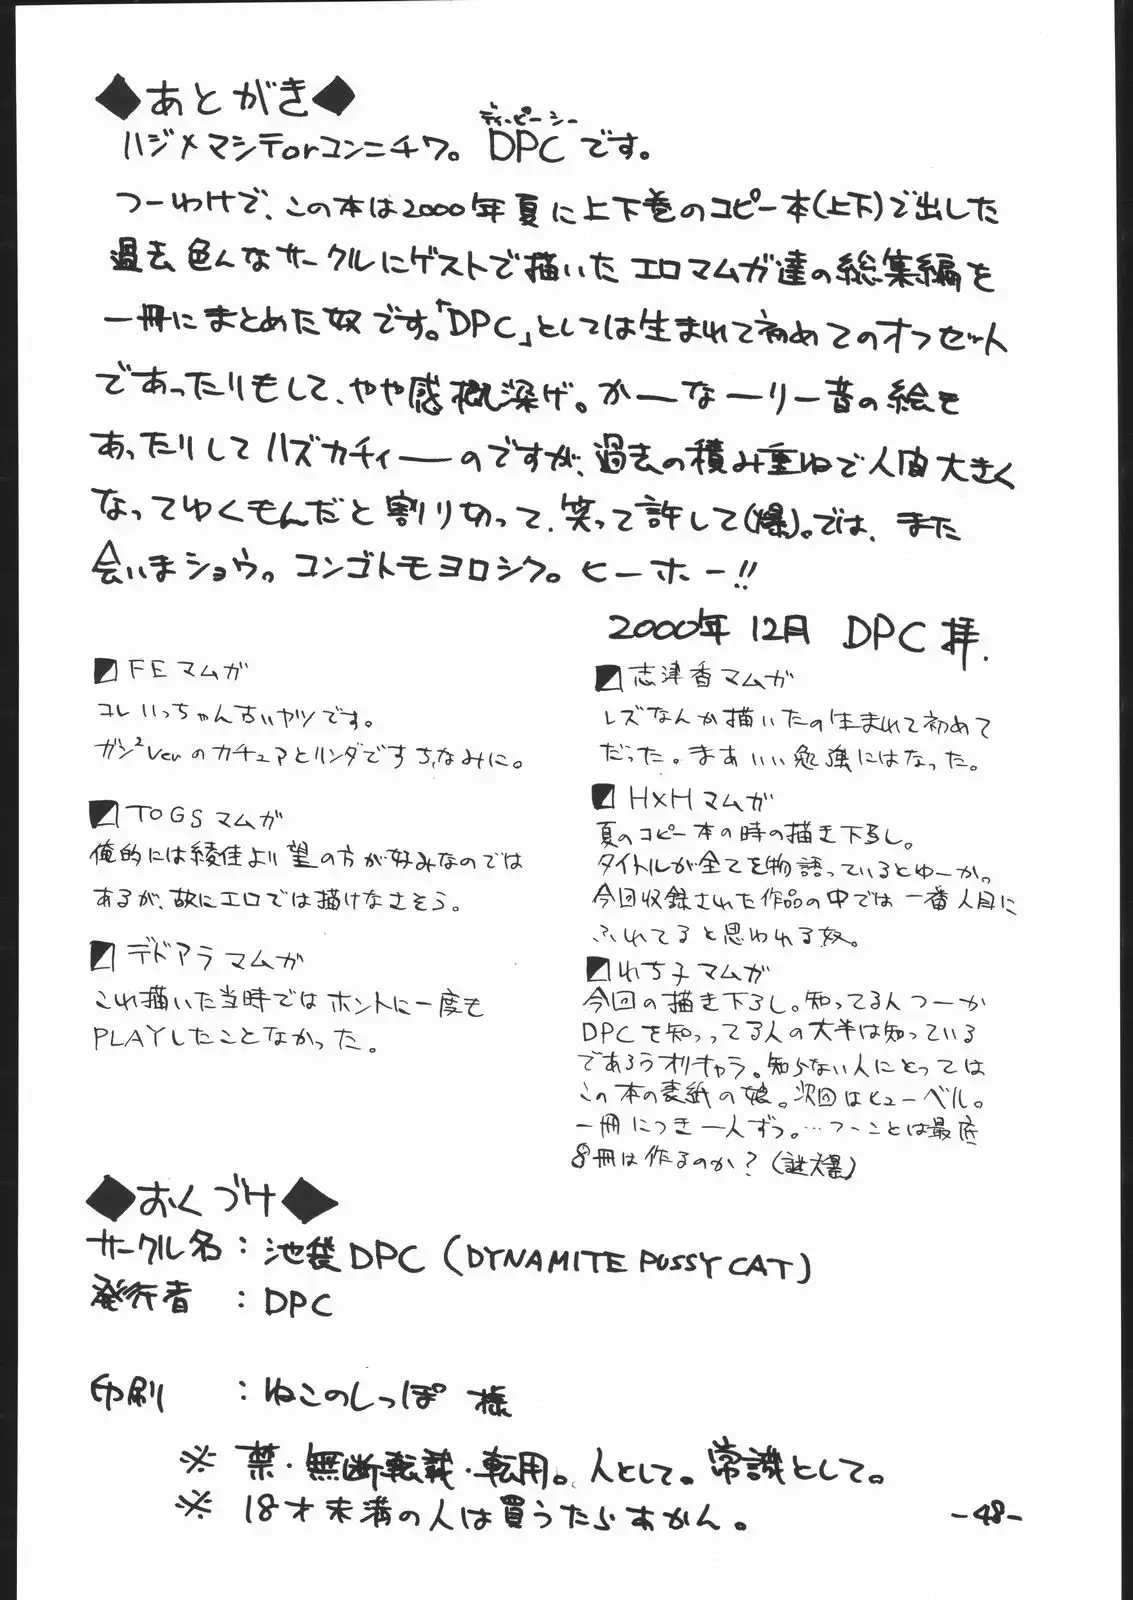 ◆あとがき◆
ディーピーシー
ハジメマシテorコンニチワ。DPCです。
つーわけで、この本は2000年夏に上下巻のコピー本(上下)で出した
過去色んなサークルにゲストで描いたエロマムガ達の総集編を
一冊にまとめた奴です。「DPC」としては生まれて初めてのオフセット
であったりもして、やや感概深げ。かーなーりー昔の絵も
あったりしてハズカチィーのですが、過去の積み重ねで人間大きく
なってゆくもんだと割り切って、笑って許して(爆)。では、また
会いまショウっ。コンゴトモヨロシク。ヒーホー!!
2000年12月 DPC 拝.
FEマムガ
コレいっちゃん古いヤツです。
ガシ²Verのカチュアとリンダですちなみに。
ToGSマムガ
俺的には綾佳より望の方が好みなのでは
あるが、故にエロでは描けなさそう。
デドアラマムガ
これ描いた当時ではホントに一度も
PLAYしたことなかった。
志津香マムガ
レズなんか描いたの生まれて初めて
だった。まあいい勉強にはなった。
H×Hマムガ
夏のコピー本の時の描き下ろし。
タイトルが全てを物語っているとゆーか。
今回収録された作品の中では一番人目に
ふれてると思われる奴。
れち子マムガ
今回の描き下ろし。知ってる人つーか
DPCを知ってる人の大半は知っている
であろうオリキャラ。知らない人にとっては
この本の表紙の娘。次回はヒューベル。
一冊につき一人ずつ。…つーことは最底
8冊は作るのか?(謎爆)
◆おくづけ◆
サークル名:池袋DPC(DYNAMITE PUSSY CAT)
発行者:DPC
印刷:ねこのしっぽ 様
※ 禁・無断転載・転用。人として。常識として。
※ 18才未満の人は買うたらあかん。
-48-